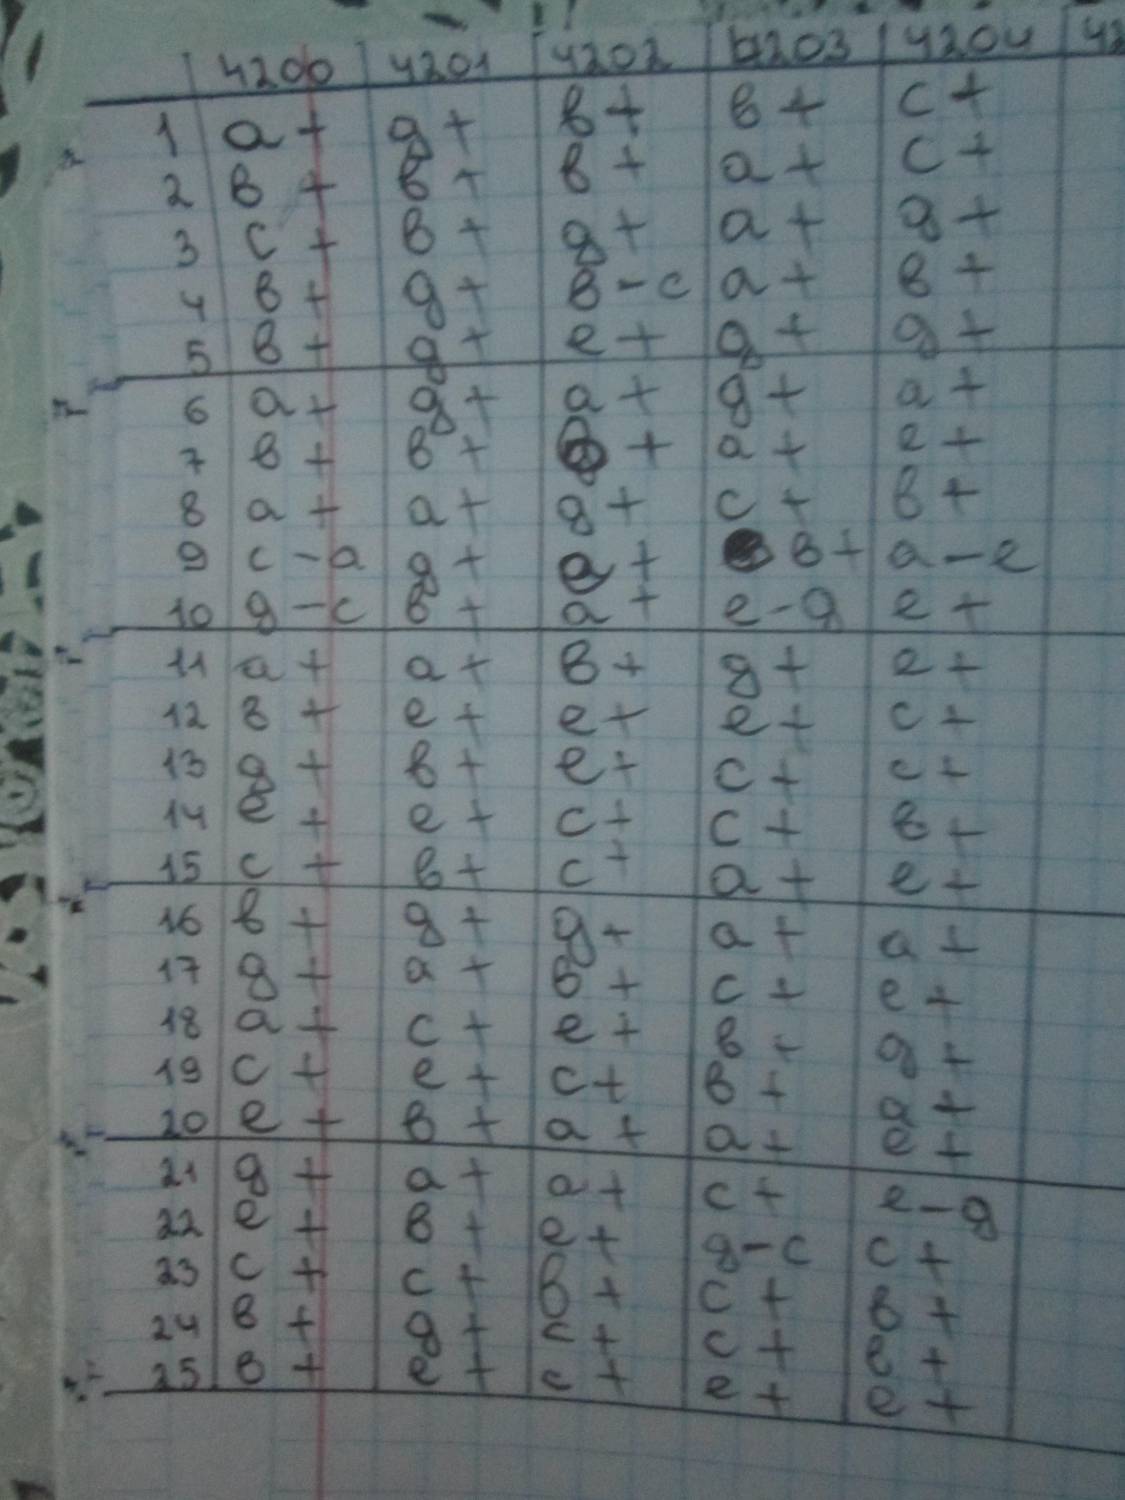 4200 4201 4202 4203 4204 42
1 a + g + в + в + c +
2 в + в + в + a + c +
3 c + в + g + a + g +
4 в + g + в - c a + в +
5 в + g + e + g + g +
6 a + g + a + g + a +
7 в + в + + a + e +
8 a + a + g + c + в +
9 c - a g + a + в + a - e
10 g - c в + a + e - g e +
11 a + a + в + g + e +
12 в + e + e + e + c +
13 g + в + e + c + c +
14 e + e + c + c + в +
15 c + в + c + a + e +
16 в + g + g + a + a +
17 g + a + в + c + e +
18 a + c + e + в + g +
19 c + e + c + в + a +
20 e + в + a + a + e +
21 g + a + a + c + e - g
22 e + в + e + g - c c +
23 c + c + в + c + в +
24 в + g + c + c + в +
25 в + e + e + e + e +